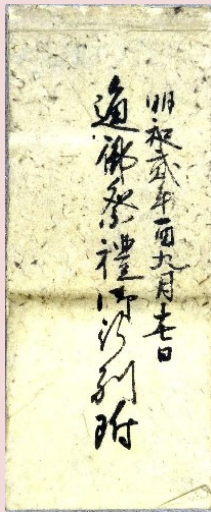 明和弐年酉九月十七日
通御祭禮御行列附